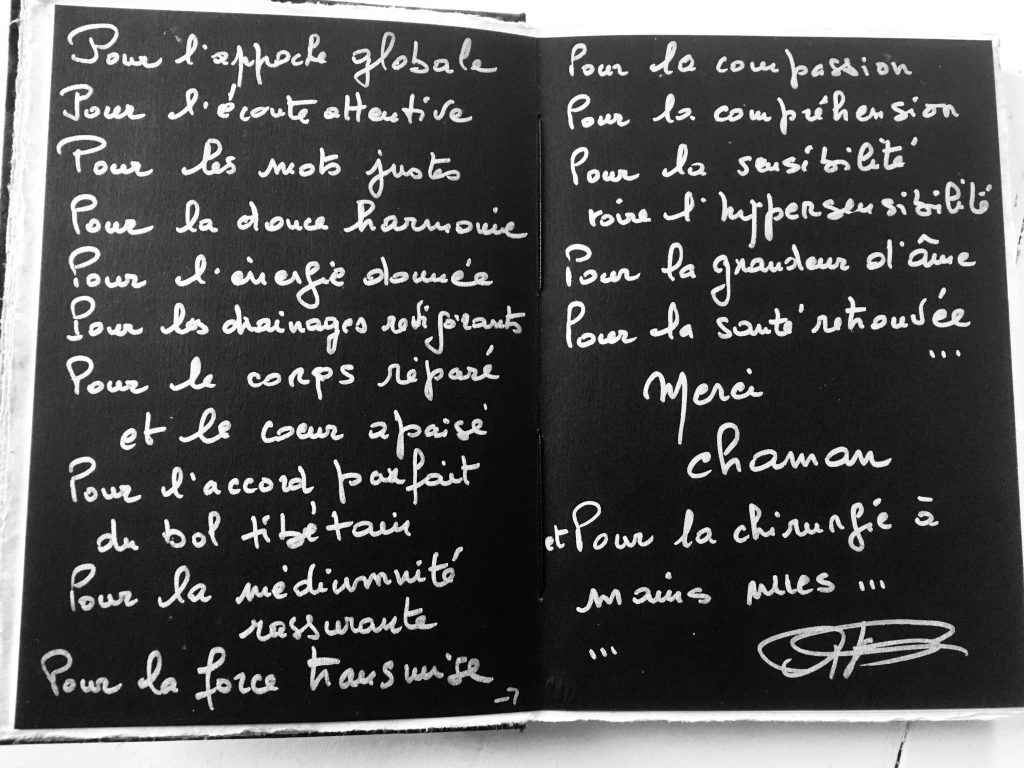 Pour l'appoche globale
Pour l'écoute attentive
Pour les mots justes
Pour la douce harmonie
Pour l'énergie donnée
Pour les drainages revigorants
Pour le corps réparé
et le cœur apaisé
Pour l'accord parfait
du bol tibétain
Pour la médiumnité
rassurante
Pour la force transmise
→
Pour la compassion
Pour la compréhension
Pour la sensibilité
voire l'hypersensibilité
Pour la grandeur d'âme
Pour la santé retrouvée
...
Merci
chaman
et Pour la chirurgie à
mains nues ...
...